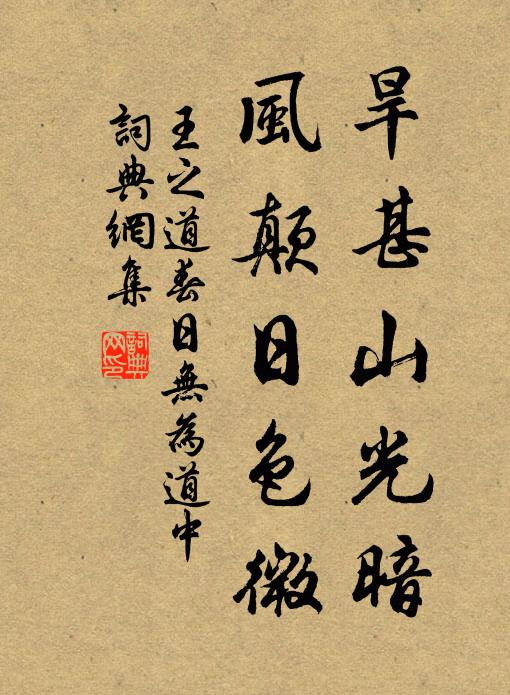 旱甚山光暗
風顛日色微
王之道春日無為道中
詞典網集
詞典網印